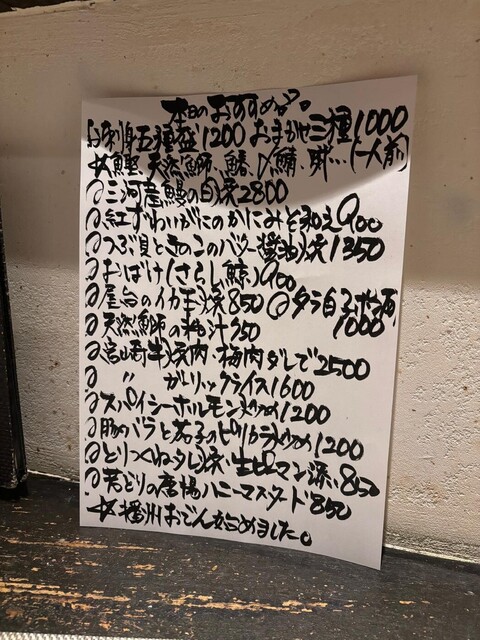 本日のおすすめです。
お刺身五種盛1200 おまかせ三種1000
☆鰹、天然鰤、鰆、〆鯖、鮃… (一人前)
三河産鰻の白焼2800
紅ずわいがにのかにみそ和え900
つぶ貝ときのこのバター醤油焼1350
おばけ(さらし鯨)900
屋台のイカ玉焼850 タラ白子ポン酢1000
天然鰤の粕汁750
宮崎牛焼肉・梅肉ダレで2500
〃 ガーリックライス1600
スパイシーホルモン炒め1200
豚バラと茄子のピリカラ炒め1200
とりつくねタレ焼・生ピーマン添い850
若どりの唐揚ハニーマスタード850
☆播州おでん始めました。